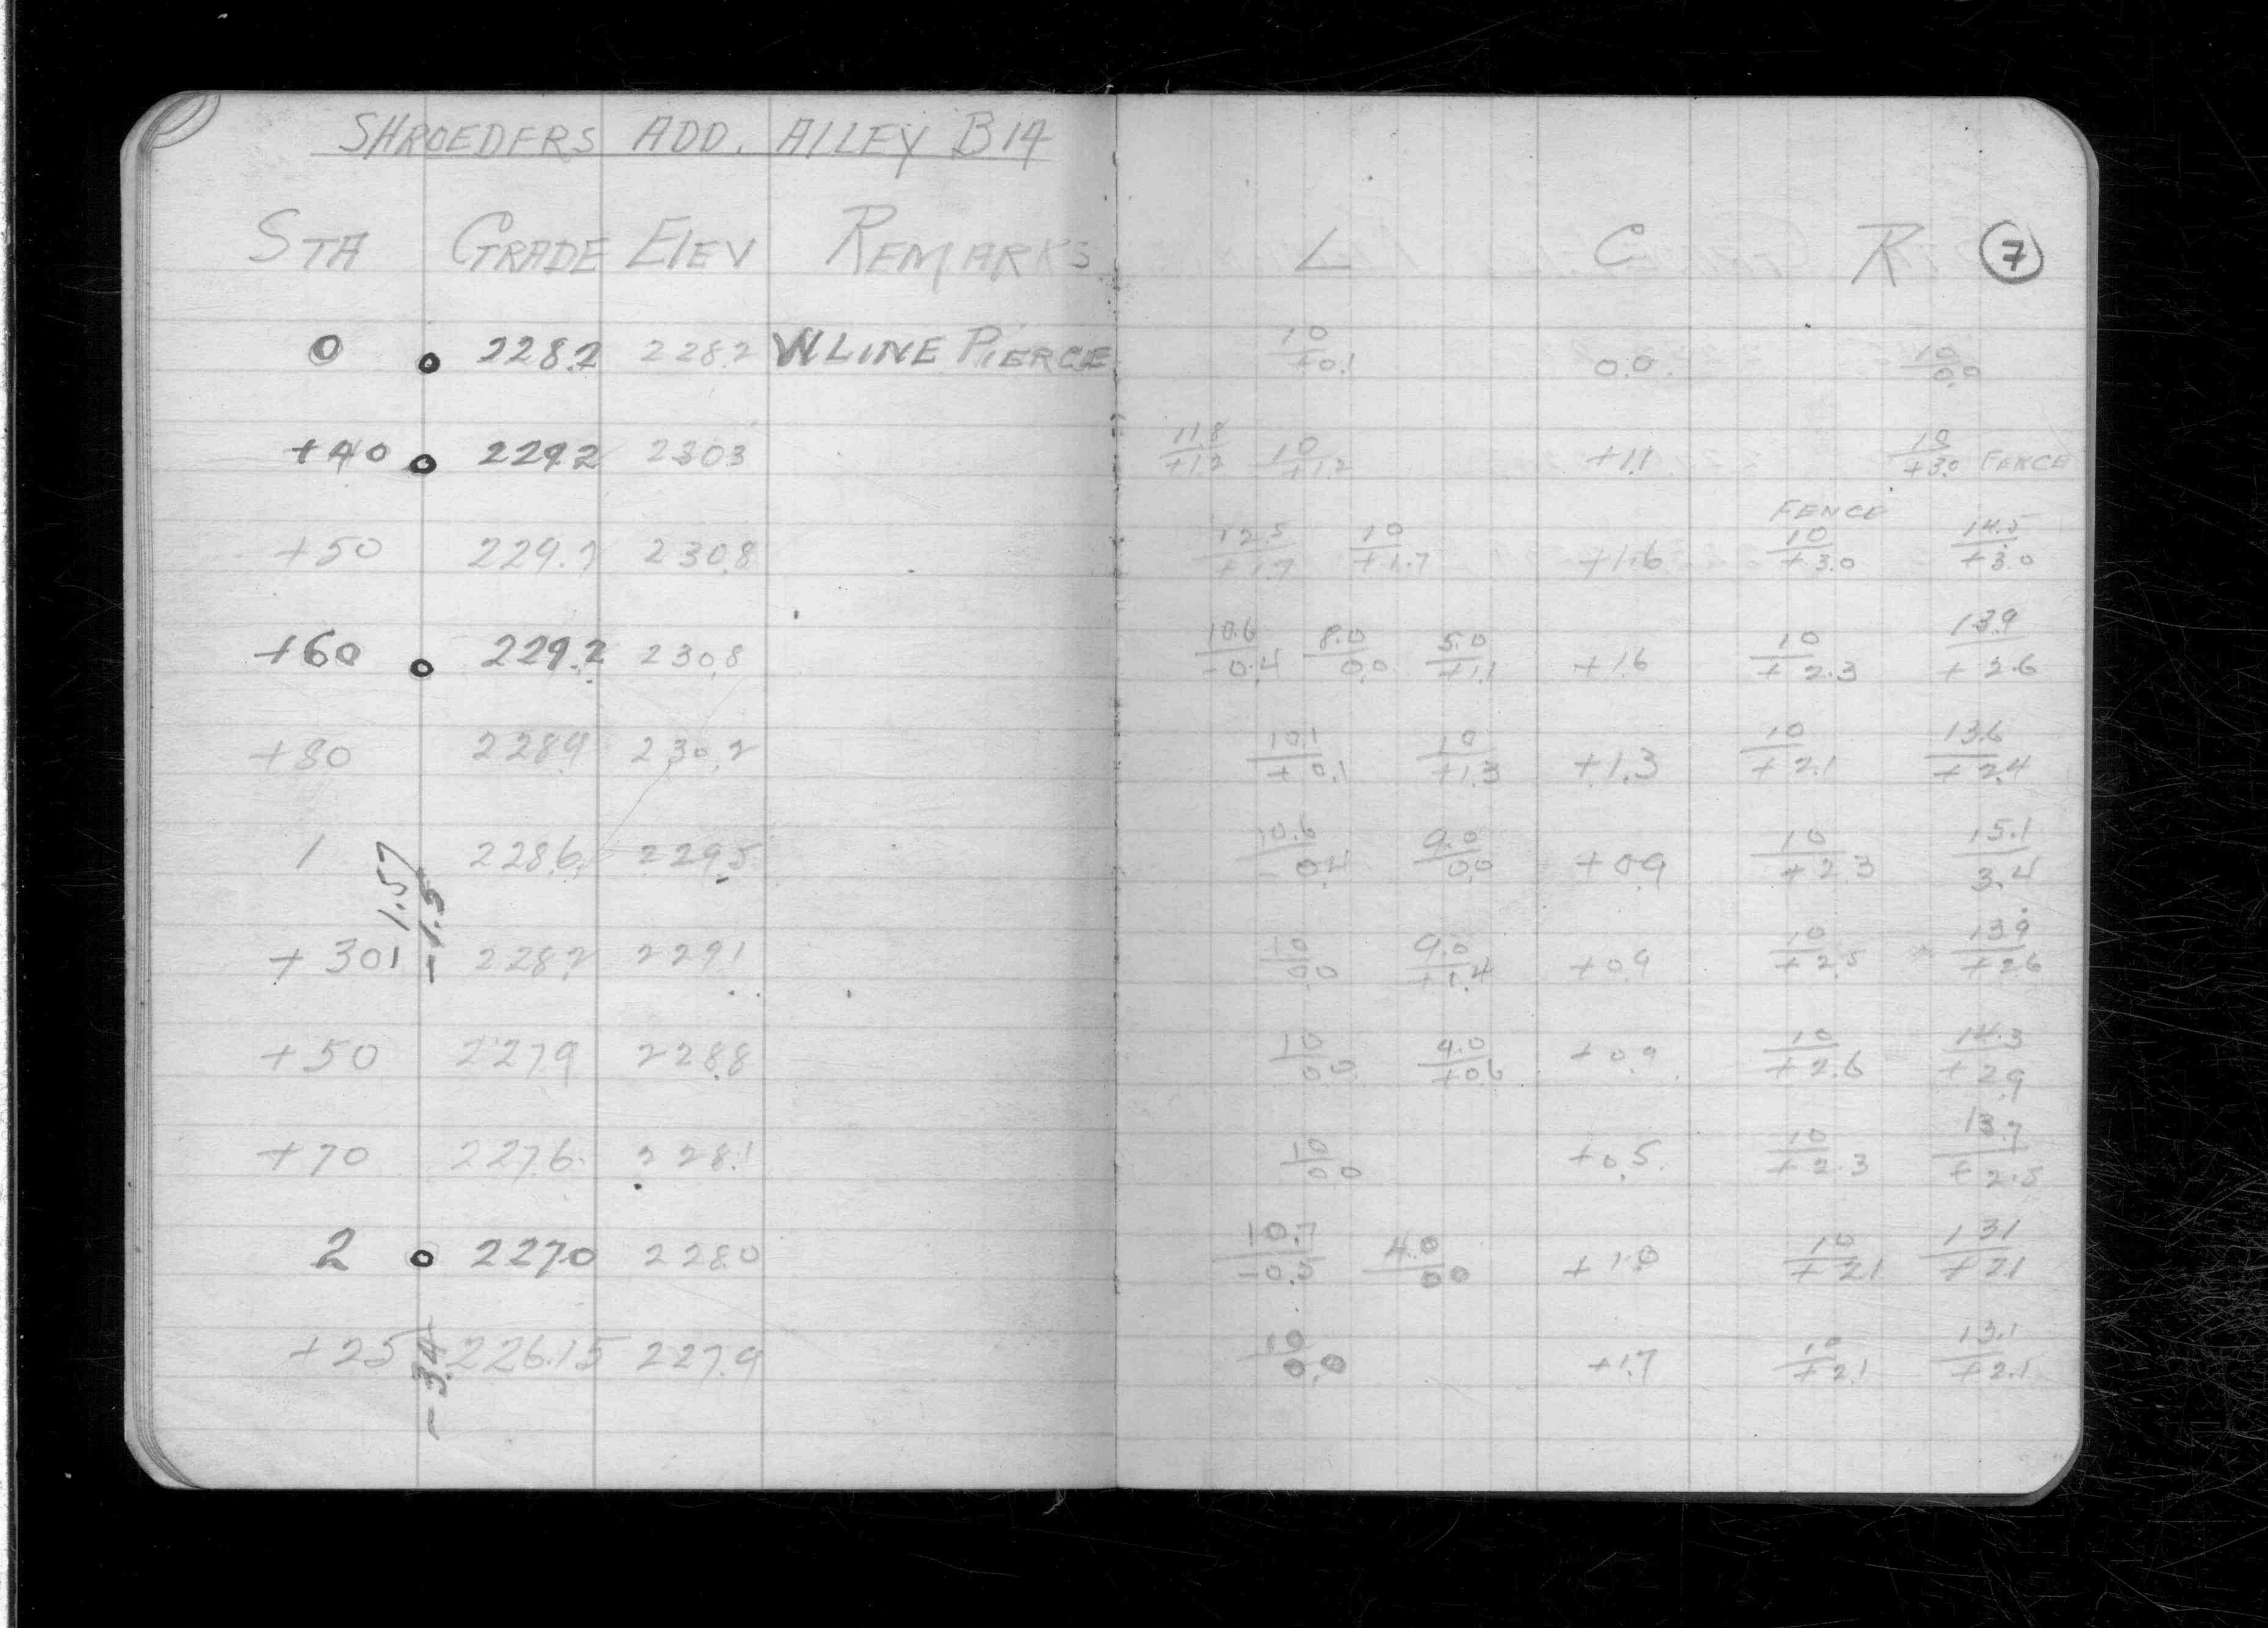 SHROEDERS ADD. ALLEY B14
STA GRADE ELEV REMARKS L C R 7
0 228.2 228.2 W LINE PIERCE 10/+0.1 0.0 10/0.0
+40 229.2 230.3 11.8/+1.2 10/+1.2 +1.1 10/+3.0 FENCE
FENCE
+50 229.2 230.8 12.5/+1.7 10/+1.7 +1.6 10/+3.0 14.5/+3.0
+60 229.2 230.8 10.6/-0.4 8.0/0.0 5.0/+1.1 +1.6 10/+2.3 13.9/+2.6
+80 228.9 230.2 10.1/+0.1 10/+1.3 +1.3 10/+2.1 13.6/+2.4
1 228.6 229.5 10.6/-0.4 9.0/0.0 +0.9 10/+2.3 15.1/3.4
1.57
-1.5
+30 228.2 229.1 10/0.0 9.0/+1.4 +0.9 10/+2.5 13.9/+2.6
+50 227.9 228.8 10/0.0 9.0/+0.6 +0.9 10/+2.6 14.3/+2.9
+70 227.6 228.1 10/0.0 +0.5 10/+2.3 13.7/+2.5
2 227.0 228.0 10.7/ 4.0/0.0 +1.0 10/+2.1 13.1/+2.1
+25 226.15 227.9 10/0.0 +1.7 10/+2.1 13.1/+2.1
-3.4